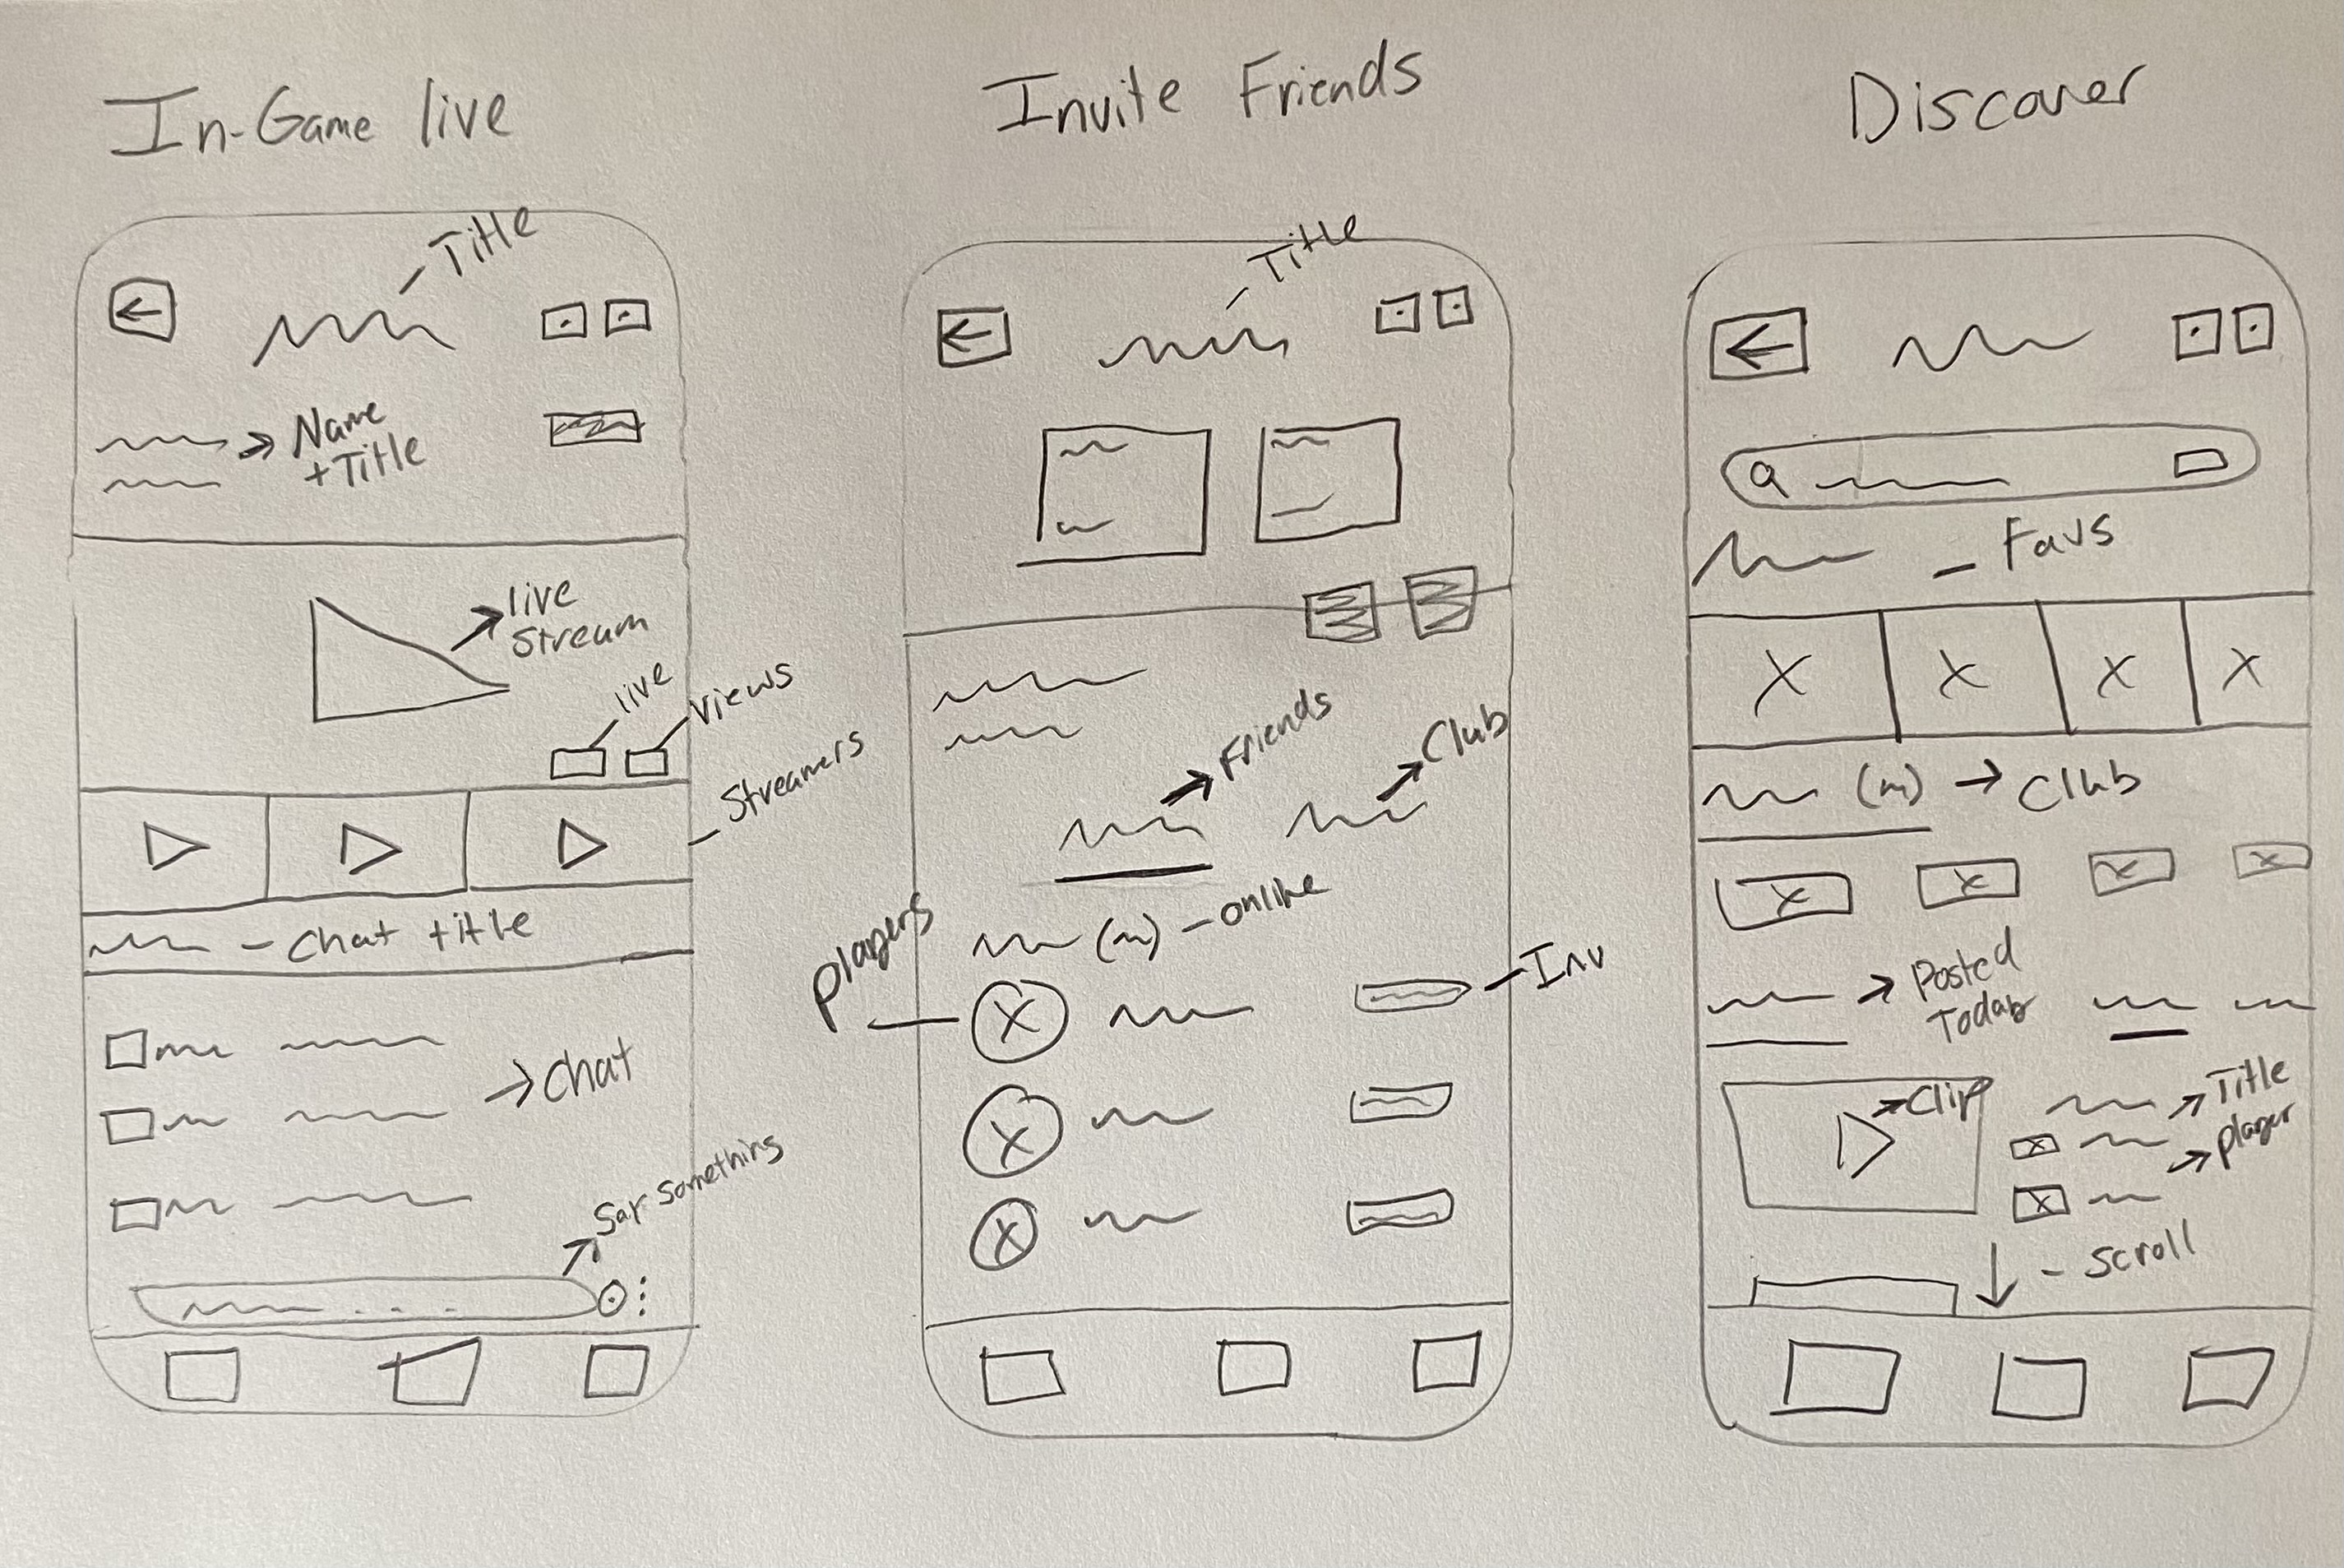 In-Game live
Title
Name
+Title
live
Stream
live
Views
Streamers
- Chat title
Chat
Say Something
Invite Friends
Title
Friends
Club
(m) - online
players
Inv
Discover
- Favs
(m) → Club
Posted
Today
Clip
Title
player
- Scroll